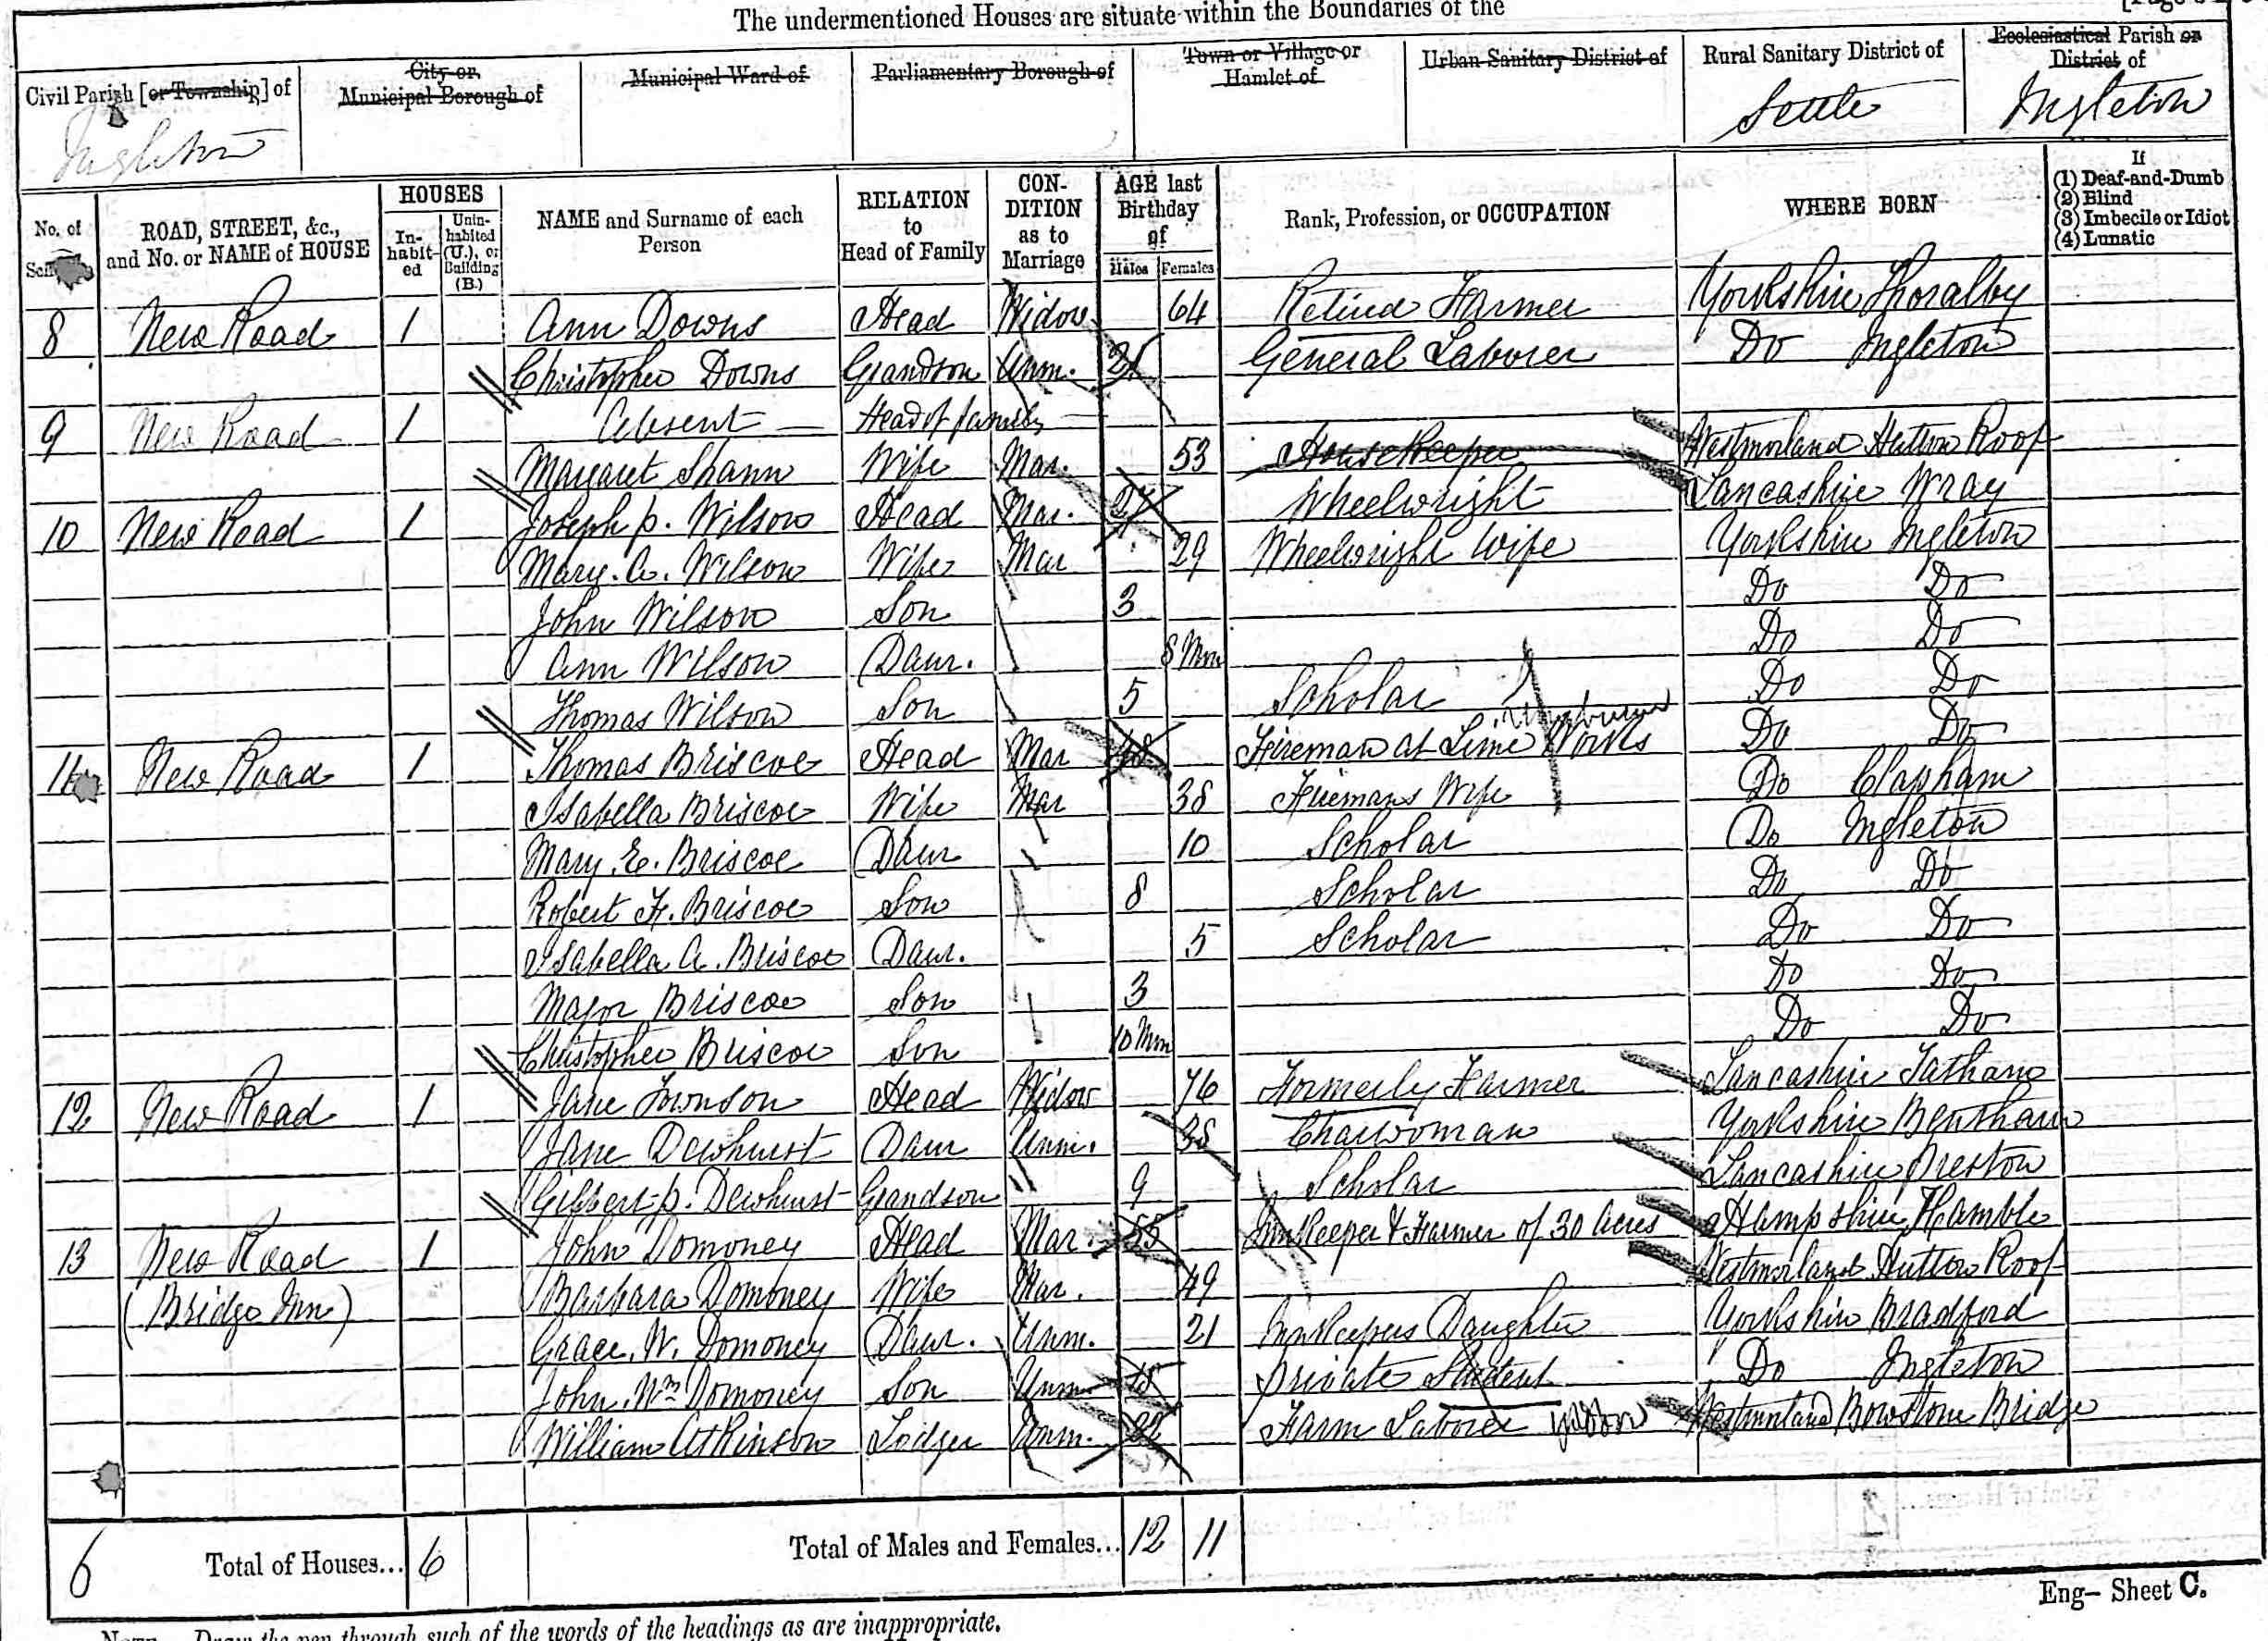 The undermentioned Houses are situate within the Boundaries of the
Civil Parish [or Township] of
City or Municipal Borough of
Municipal Ward of
Parliamentary Borough of
Town or Village or Hamlet of
Urban Sanitary District of
Rural Sanitary District of
Ecclesiastical Parish or District of
Ingleton Settle Ingleton
No. of
ROAD, STREET, &c., and No. or NAME of HOUSE
HOUSES
In-habit-ed
Unin-habited (U.), or Building (B.)
NAME and Surname of each Person
RELATION to Head of Family
CON-DITION as to Marriage
AGE last Birthday of
Males Females
Rank, Profession, or OCCUPATION
WHERE BORN
If
(1) Deaf-and-Dumb
(2) Blind
(3) Imbecile or Idiot
(4) Lunatic
8 New Road 1 Ann Downs Head Widow 64 Retired Farmer Yorkshire Thoralby
Christopher Downs Grandson Unm. 21 General Laborer Do Ingleton
9 New Road 1 Absent — Head of family —
Margaret Shann Wife Mar. 53 Housekeeper Westmorland Hutton Roof
10 New Road 1 Joseph P. Wilson Head Mar. Wheelwright Lancashire Wray
Mary. A. Wilson Wife Mar 29 Wheelwright Wife Yorkshire Ingleton
John Wilson Son 3 Do Do
Ann Wilson Daur. 8 Mon Do Do
Thomas Wilson Son 5 Scholar Do Do
11 New Road 1 Thomas Briscoe Head Mar Fireman at Lime Works Do Do
Isabella Briscoe Wife Mar 38 Firemans Wife Do Clapham
Mary. E. Briscoe Daur 10 Scholar Do Ingleton
Robert H. Briscoe Son 8 Scholar Do Do
Isabella A. Briscoe Daur. 5 Scholar Do Do
Major Briscoe Son 3 Do Do
Christopher Briscoe Son 10 Mon Do Do
12 New Road 1 Jane Townson Head Widow 76 Formerly Farmer Lancashire Tatham
Jane Dewhurst Daur Unm. 38 Charwoman Yorkshire Bentham
Gilbert P. Dewhurst Grandson 9 Scholar Lancashire Preston
13 New Road 1 John Domoney Head Mar. 55 Innkeeper & Farmer of 30 Acres Hampshire Hamble
(Bridge Inn) Barbara Domoney Wife Mar. 49 Westmorland Hutton Roof
Grace. W. Domoney Daur. Unm. 21 Innkeepers Daughter Yorkshire Bradford
John. Wm Domoney Son Unm 18 Private Student Do Ingleton
William Atkinson Lodger Unm. 22 Farm Laborer Westmorland Bowstone Bridge
6 Total of Houses... 6 Total of Males and Females... 12 11
Eng— Sheet C.
NOTE.—Draw the pen through such of the words of the headings as are inappropriate.